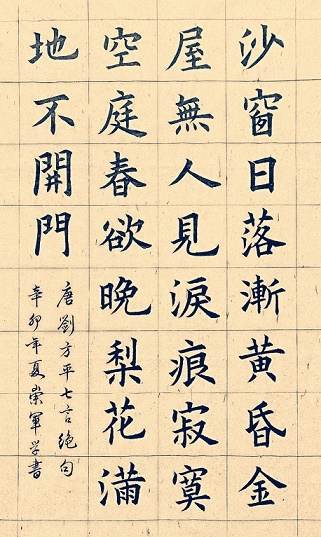 沙窗日落漸黃昏金
屋無人見淚痕寂寞
空庭春欲晚梨花滿
地不開門
唐劉方平七言絕句
辛卯年夏崇軍学書